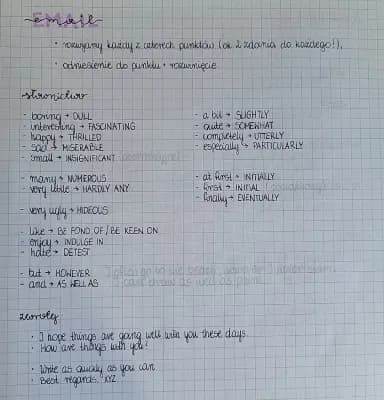 EMAIL
• rozwijamy każdy z czterech punktów (ok 2 zdania do każdego!),
• odniesienie do punktu + rozwinięcie
słownictwo
- boring → DULL
- interesting → FASCINATING
- happy → THRILLED
- sad → MISERABLE
- small → INSIGNIFICANT
- many → NUMEROUS
- very little → HARDLY ANY
- very ugly → HIDEOUS
- like → BE FOND OF / BE KEEN ON
- enjoy → INDULGE IN
- hate → DETEST
- but → HOWEVER
- and → AS WELL AS
- a bit → SLIGHTLY
- quite → SOMEWHAT
- completely → UTTERLY
- especially → PARTICULARLY
- at first → INITIALLY
- first → INITIAL
- finally → EVENTUALLY
zwroty
• I hope things are going well with you these days.
• How are things with you?
• Write as quickly as you can
• Best regards, XYZ